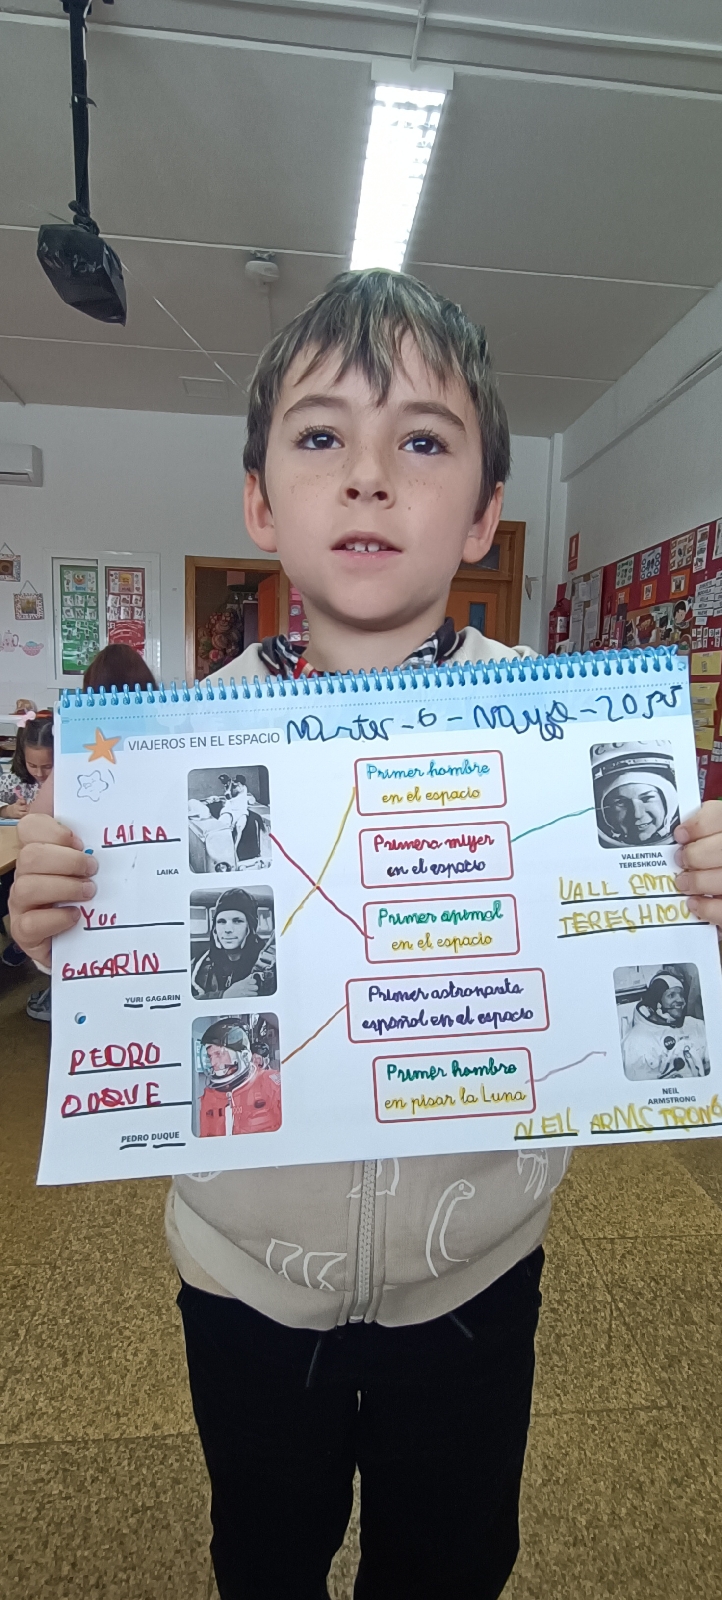 Martes - 6 - Mayo - 2025
VIAJEROS EN EL ESPACIO
LAIKA
LAIKA
Yur
GAGARIN
YURI GAGARIN
PEDRO
DUQUE
PEDRO DUQUE
Primer hombre
en el espacio
Primera mujer
en el espacio
Primer animal
en el espacio
Primer astronauta
español en el espacio
Primer hombre
en pisar la Luna
VALENTINA
TERESHKOVA
VALL ENTN
TERESHKOV
NEIL
ARMSTRONG
NEIL ARMSTRONG